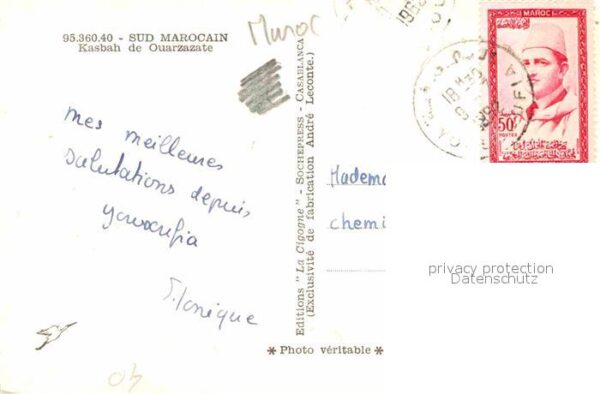 95.360.40 - SUD MAROCAIN
Kasbah de Ouarzazate
Maroc
mes meilleures
salutations depuis
Monique
Editions "La Cigogne" - SOCHEPRESS - CASABLANCA
(Exclusivité de fabrication André Leconte.)
* Photo véritable *
MAROC
50F
POSTES
Madema
chemi
privacy protection
Datenschutz
04